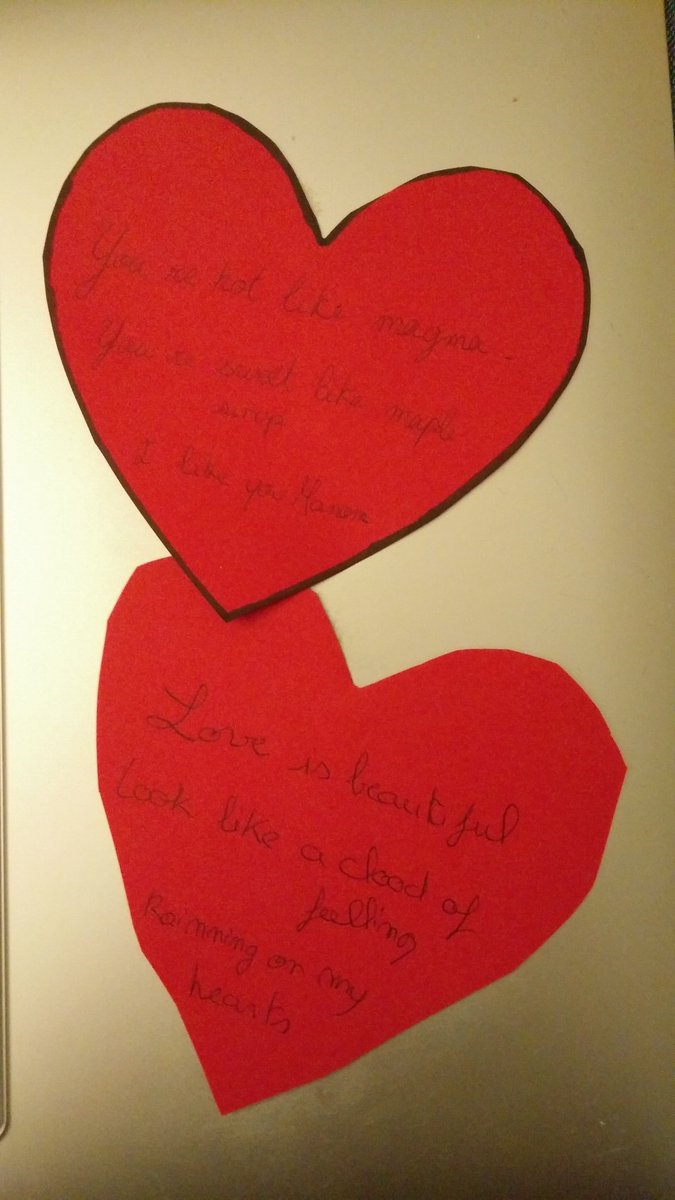 You're hot like magma.
You're sweet like maple
sirup
I like you Manon
Love is beautiful
Look like a clood of
feelling
Rainning on my
hearts